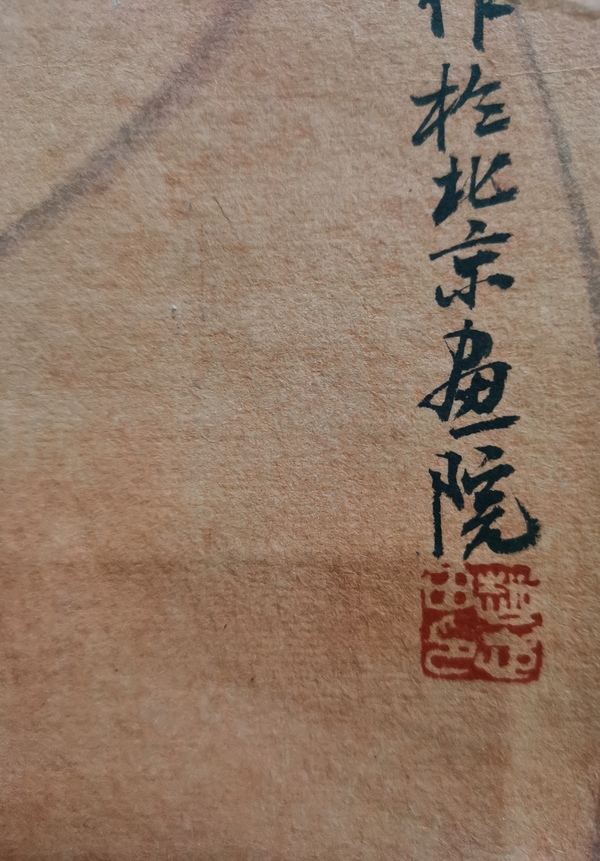 作於北京画院